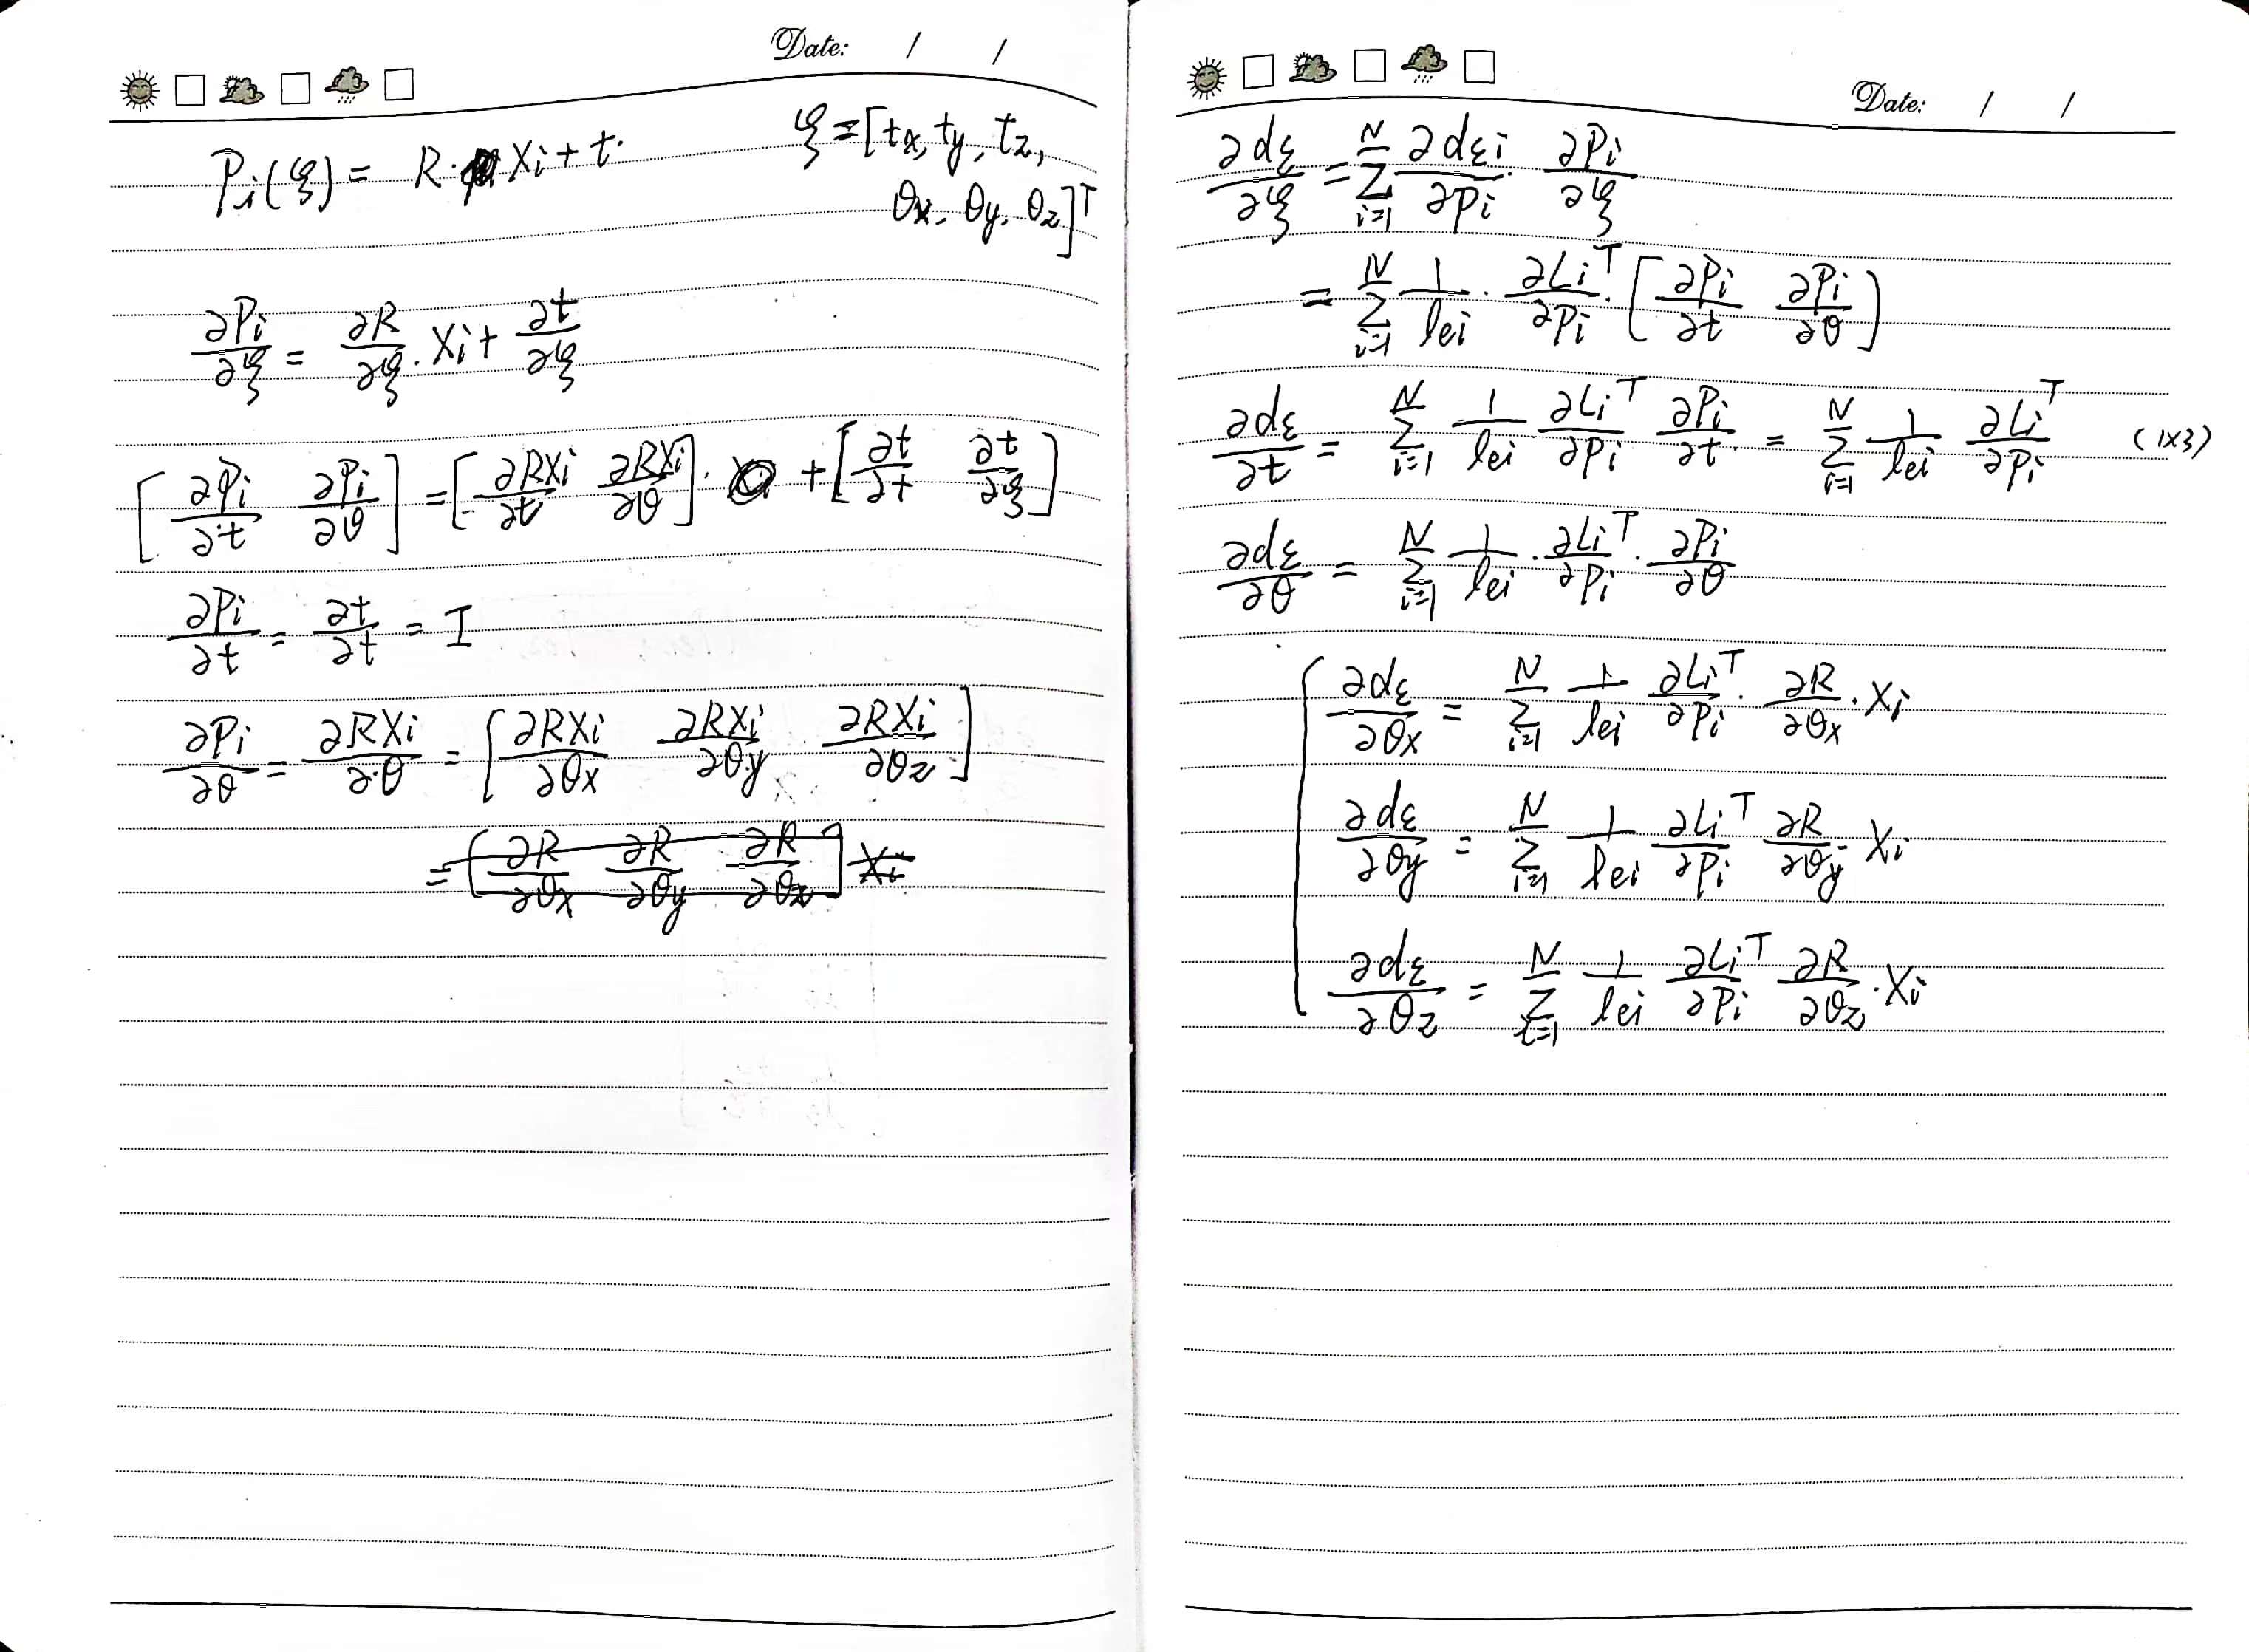 Date: / /
Pi(ξ) = R · Xi + t. ξ = [tx, ty, tz,
θx, θy, θz]ᵀ
∂Pi/∂ξ = ∂R/∂ξ · Xi + ∂t/∂ξ
[∂Pi/∂t ∂Pi/∂θ] = [∂RXi/∂t ∂RXi/∂θ] · + [∂t/∂t ∂t/∂ξ]
∂Pi/∂t = ∂t/∂t = I
∂Pi/∂θ = ∂RXi/∂θ = [∂RXi/∂θx ∂RXi/∂θy ∂RXi/∂θz]
= [∂R/∂θx ∂R/∂θy ∂R/∂θz] Xi
Date: / /
∂dε/∂ξ = Σ_{i=1}^{N} ∂dεi/∂Pi · ∂Pi/∂ξ
= Σ_{i=1}^{N} 1/lei · ∂Liᵀ/∂Pi · [∂Pi/∂t ∂Pi/∂θ]
∂dε/∂t = Σ_{i=1}^{N} 1/lei ∂Liᵀ/∂Pi ∂Pi/∂t. = Σ_{i=1}^{N} 1/lei ∂Liᵀ/∂Pi (1×3)
∂dε/∂θ = Σ_{i=1}^{N} 1/lei · ∂Liᵀ/∂Pi · ∂Pi/∂θ
{ ∂dε/∂θx = Σ_{i=1}^{N} 1/lei ∂Liᵀ/∂Pi · ∂R/∂θx · Xi
∂dε/∂θy = Σ_{i=1}^{N} 1/lei ∂Liᵀ/∂Pi ∂R/∂θy Xi
∂dε/∂θz = Σ_{i=1}^{N} 1/lei ∂Liᵀ/∂Pi ∂R/∂θz · Xi